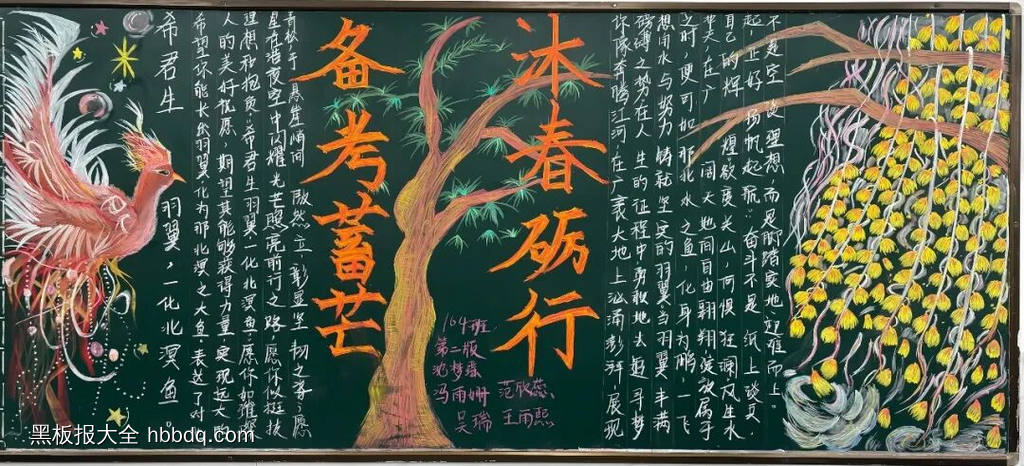 希君生 羽翼，一化北溟鱼。
希望你能长出羽翼化为那北溟之大鱼 表达了对
人的美好祝愿，期望其能够获得力量，实现远大的
理想和抱负"希君生羽翼，一化北溟鱼"愿你如璀璨
星在暗夜空中闪耀光芒照亮前行之路，愿你似挺拔
青松，于悬崖峭间 傲然立，彰显坚韧之姿愿
沐春砺行
备考蓄芒
164班
第二版
范欣蕊
冯雨姗
王雨熙
吴瑞
你 奔腾江河，在广袤大地上汹涌澎湃，展现
磅礴之势在人 生的征程中勇敢地去追寻梦
想用水与努力铸就坚实的羽翼当羽翼丰满
之时，便可如那北水之鱼，化身为鹏，一飞
天，在广 阔天地间自由翱翔绽放属于
自己的辉 煌欲度关山，何惧狂澜风生水
起，正好 扬帆起航"奋斗不是纸上谈兵
不是空 谈理想，而是脚踏实地，迎难而上。
黑板报大全 hbbdq.com